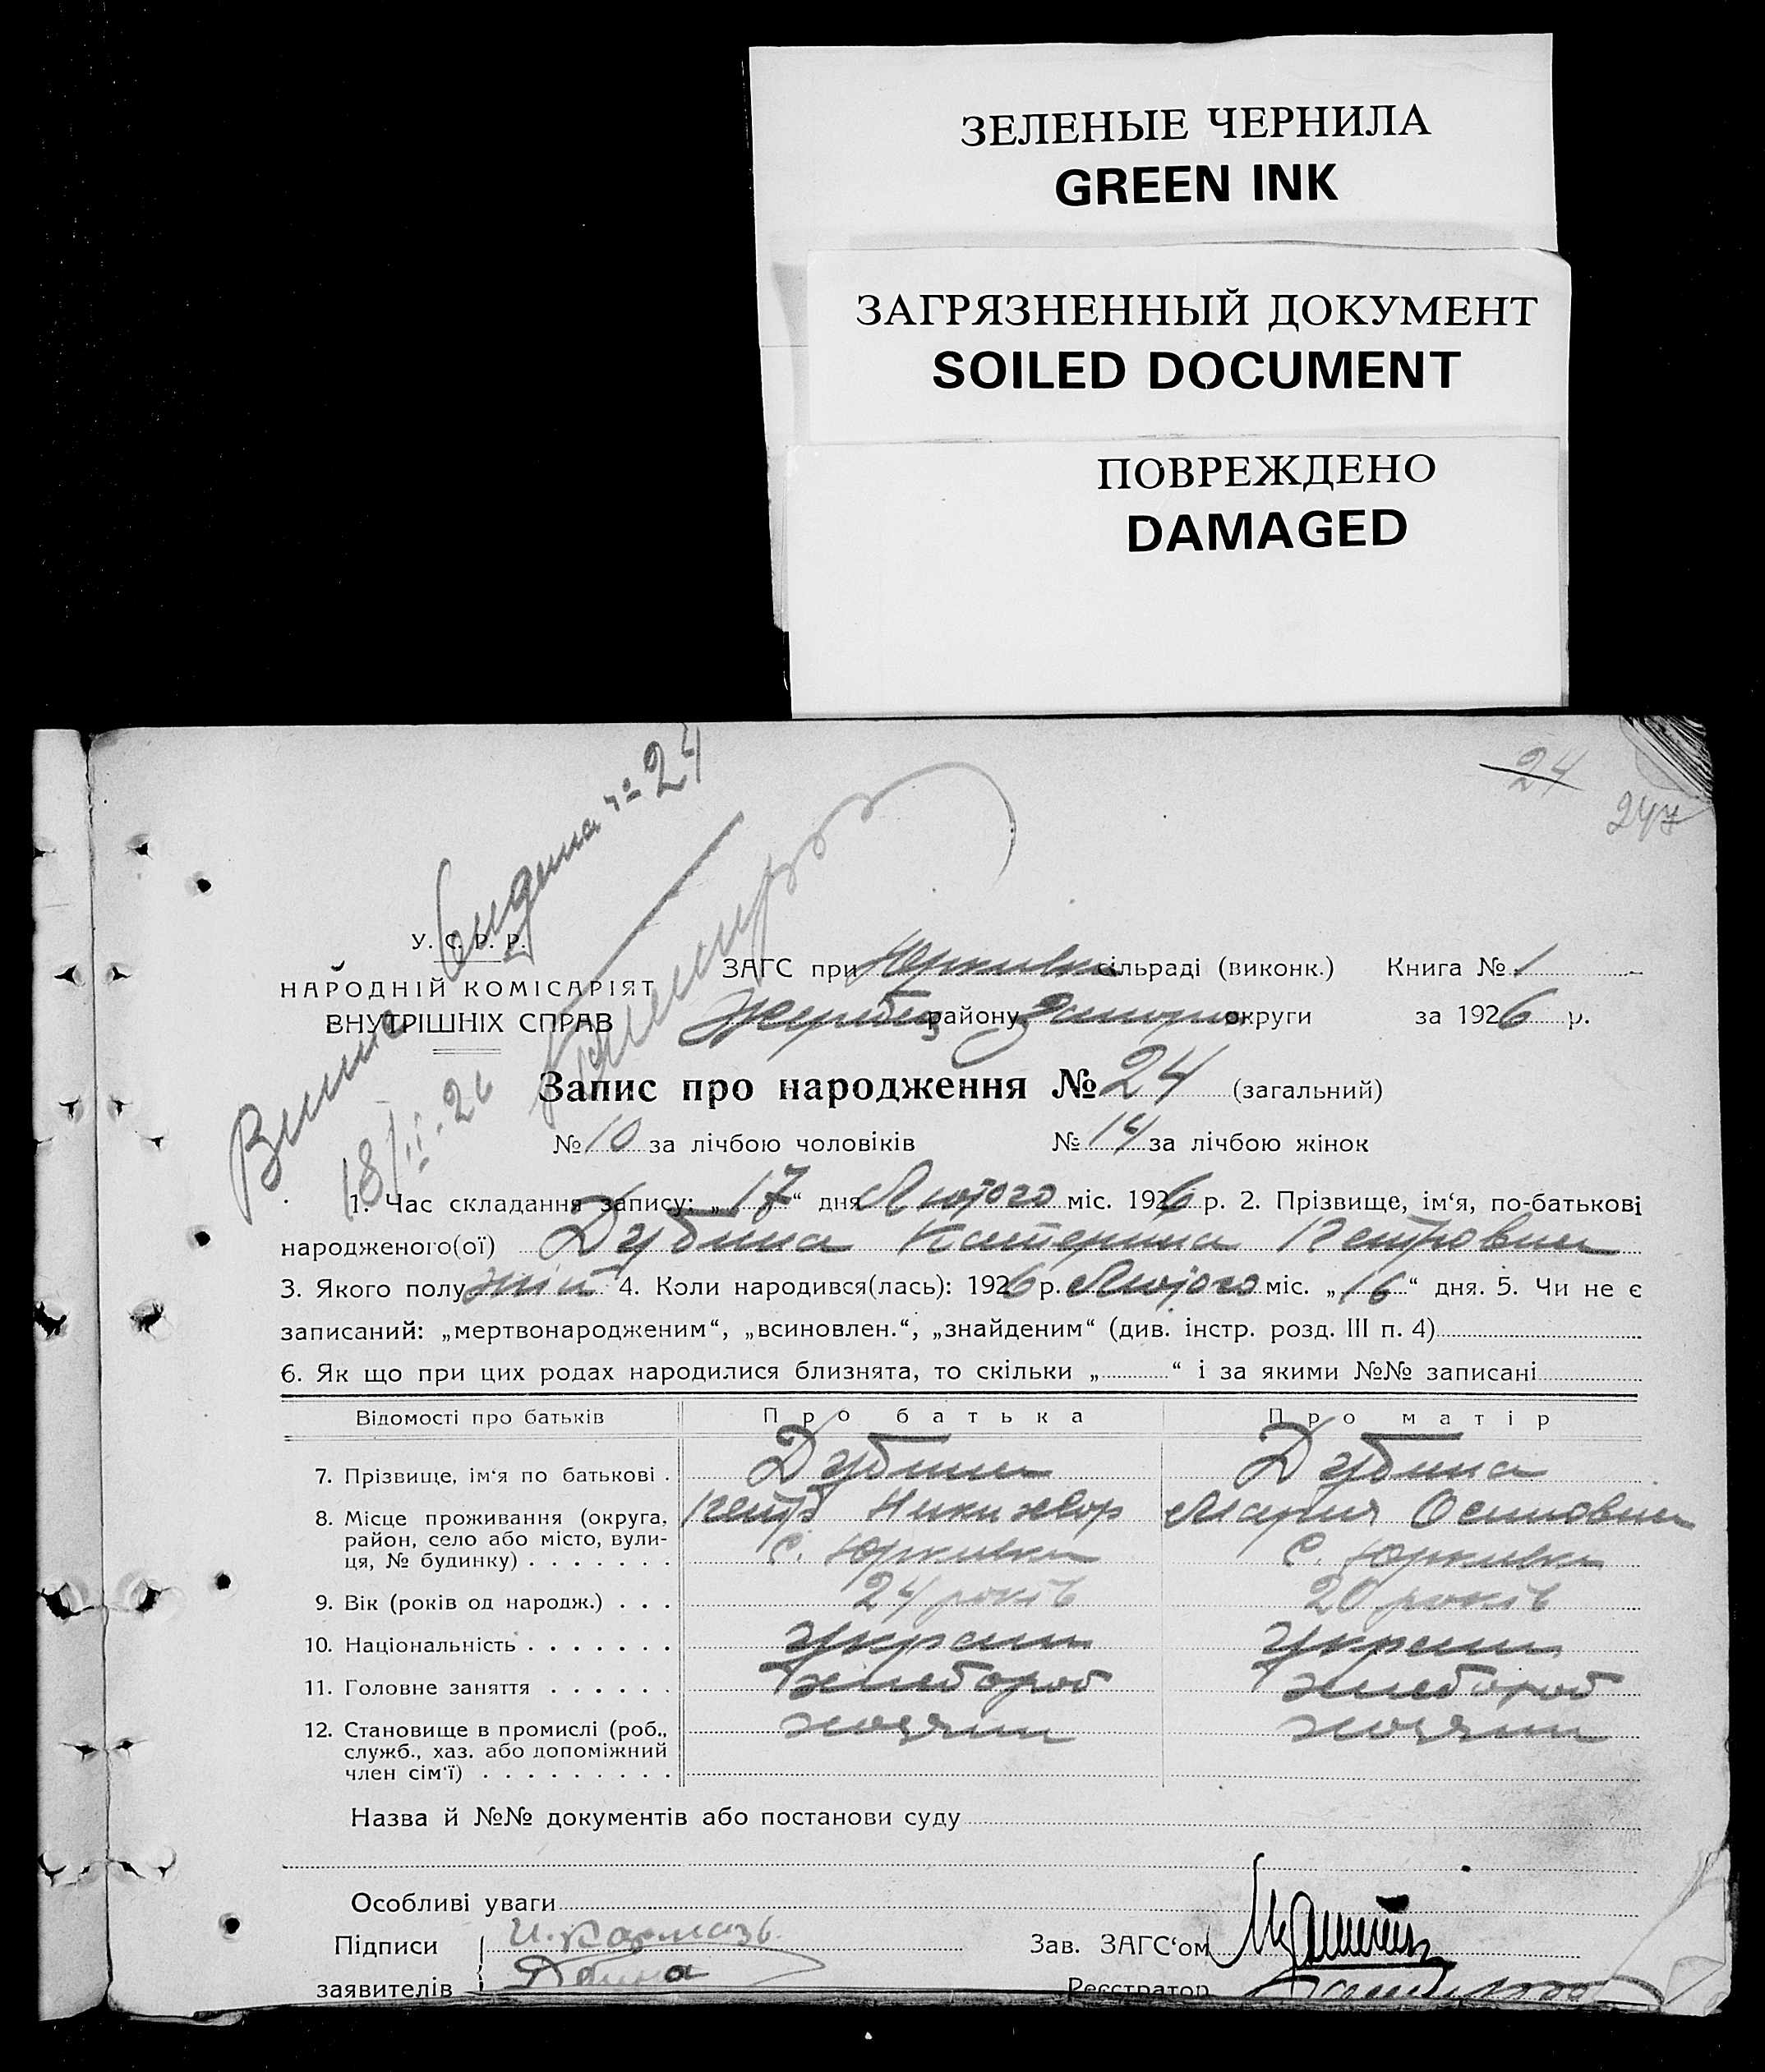 ЗЕЛЕНЫЕ ЧЕРНИЛА
GREEN INK
ЗАГРЯЗНЕННЫЙ ДОКУМЕНТ
SOILED DOCUMENT
ПОВРЕЖДЕНО
DAMAGED
24
247
Видана №24
18/II-26
У. С. Р. Р.
НАРОДНІЙ КОМІСАРІЯТ
ВНУТРІШНІХ СПРАВ
ЗАГС при Юрківск сільраді (виконк.) Книга № 1
Жеребец району Запорож округи за 1926 р.
Запис про народження № 24 (загальний)
№ 10 за лічбою чоловіків № 14 за лічбою жінок
1. Час складання запису: „17“ дня Лютого міс. 1926 р. 2. Прізвище, ім‘я, по-батькові
народженого(ої) Дубина Катерина Петровна
3. Якого полу жін 4. Коли народився(лась): 1926 р. Лютого міс. „16“ дня. 5. Чи не є
записаний: „мертвонародженим“, „всиновлен.“, „знайденим“ (див. інстр. розд. III п. 4)
6. Як що при цих родах народилися близнята, то скільки „ “ і за якими №№ записані
Відомості про батьків Про батька Про матір
7. Прізвище, ім‘я по батькові . Дубина Дубина
Петр Никифор Мария Осиповна
8. Місце проживання (округа, район, село або місто, вулиця, № будинку) . . . . . . . с. Юркивка с. Юркивка
9. Вік (років од народж.) . . . 24 років 20 років
10. Національність . . . . . . . украин украин
11. Головне заняття . . . . . . хлебороб хлебороб
12. Становище в промислі (роб., служб., хаз. або допоміжний член сім‘ї) . . . . . . . . . хозяин хозяин
Назва й №№ документів або постанови суду
Особливі уваги
Підписи И. Кармазь Зав. ЗАГС‘ом
заявителів Дбина Реєстратор